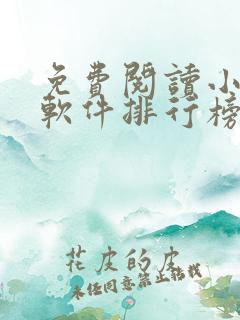 免費閱讀小
軟件排行榜
花皮的皮
未經同意禁止轉載